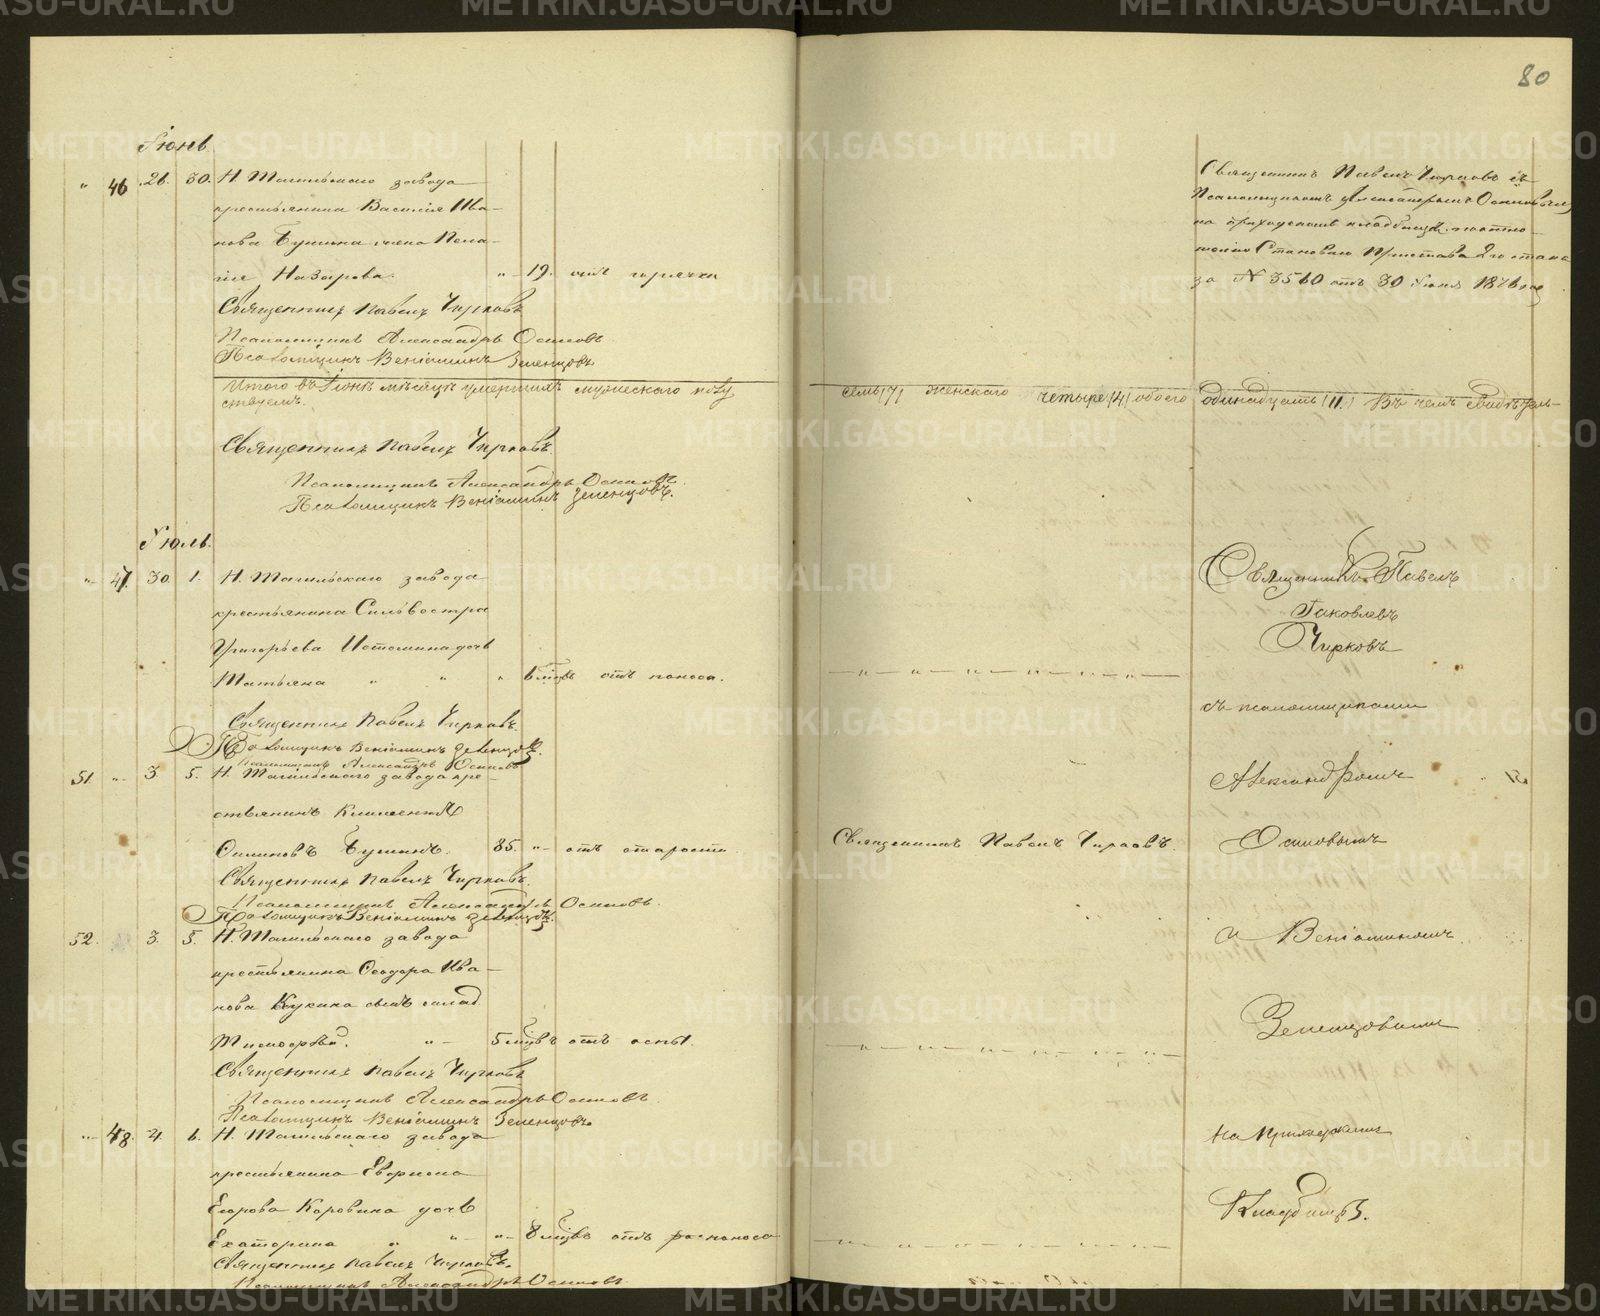 80
Іюнь
" 46 26. 30. Н. Тагильскаго завода
крестьянина Василія Ива-
нова Бушина жена Пела-
гія Назарова. " 19. отъ горячки
Священникъ Павелъ Чирковъ
Псаломщикъ Александръ Осиповъ
Псаломщикъ Веніаминъ Зеленцовъ
Священникъ Павелъ Чирковъ съ
Псаломщикомъ Александромъ Осиповымъ
на приходскомъ кладбищѣ
Становаго Пристава 2го стана
за № 3560 отъ 30 Іюня 1876 год
Итого въ Іюнѣ мѣсяцѣ умершихъ мужескаго полу семь /7/ женскаго четыре /4/ обоего одинадцать /11./ Въ чемъ свидѣтель-
ствуемъ.
Священникъ Павелъ Чирковъ.
Псаломщикъ Александръ Осиповъ.
Псаломщикъ Веніаминъ Зеленцовъ.
Іюль.
"- 47. 30. 1. Н. Тагильскаго завода
крестьянина Сильвестра
Григорьева Истомина дочь
Татьяна " " " 6 мцвъ отъ поноса.
Священникъ Павелъ Чирковъ.
Псаломщикъ Веніаминъ Зеленцовъ.
Псаломщикъ Александръ Осиповъ
51. "- 3 5. Н. Тагильскаго завода кре-
стьянинъ Климентій
Осиповъ Бушинъ. 85. "- отъ старости
Священникъ Павелъ Чирковъ.
Псаломщикъ Александръ Осиповъ.
Псаломщикъ Веніаминъ Зеленцовъ.
52. 3. 5. Н. Тагильскаго завода
крестьянина Ѳеодора Ива-
нова Кукина сынъ
"- 5 мцвъ отъ оспы.
Священникъ Павелъ Чирковъ
Псаломщикъ Александръ Осиповъ.
Псаломщикъ Веніаминъ Зеленцовъ.
"- 48. 4. 6. Н. Тагильскаго завода
крестьянина
Егорова Коровина дочь
Екатерина " "- "- 8 мцвъ отъ
Священникъ Павелъ Чирковъ.
Псаломщикъ Александръ Осиповъ.
Священникъ Павелъ Чирковъ.
Священникъ Павелъ
Іаковлевъ
Чирковъ
съ псаломщиками
Александромъ 51
Осиповымъ
и Веніаминомъ
Зеленцовымъ
на приходскомъ
кладбищѣ.
METRIKI.GASO-URAL.RU